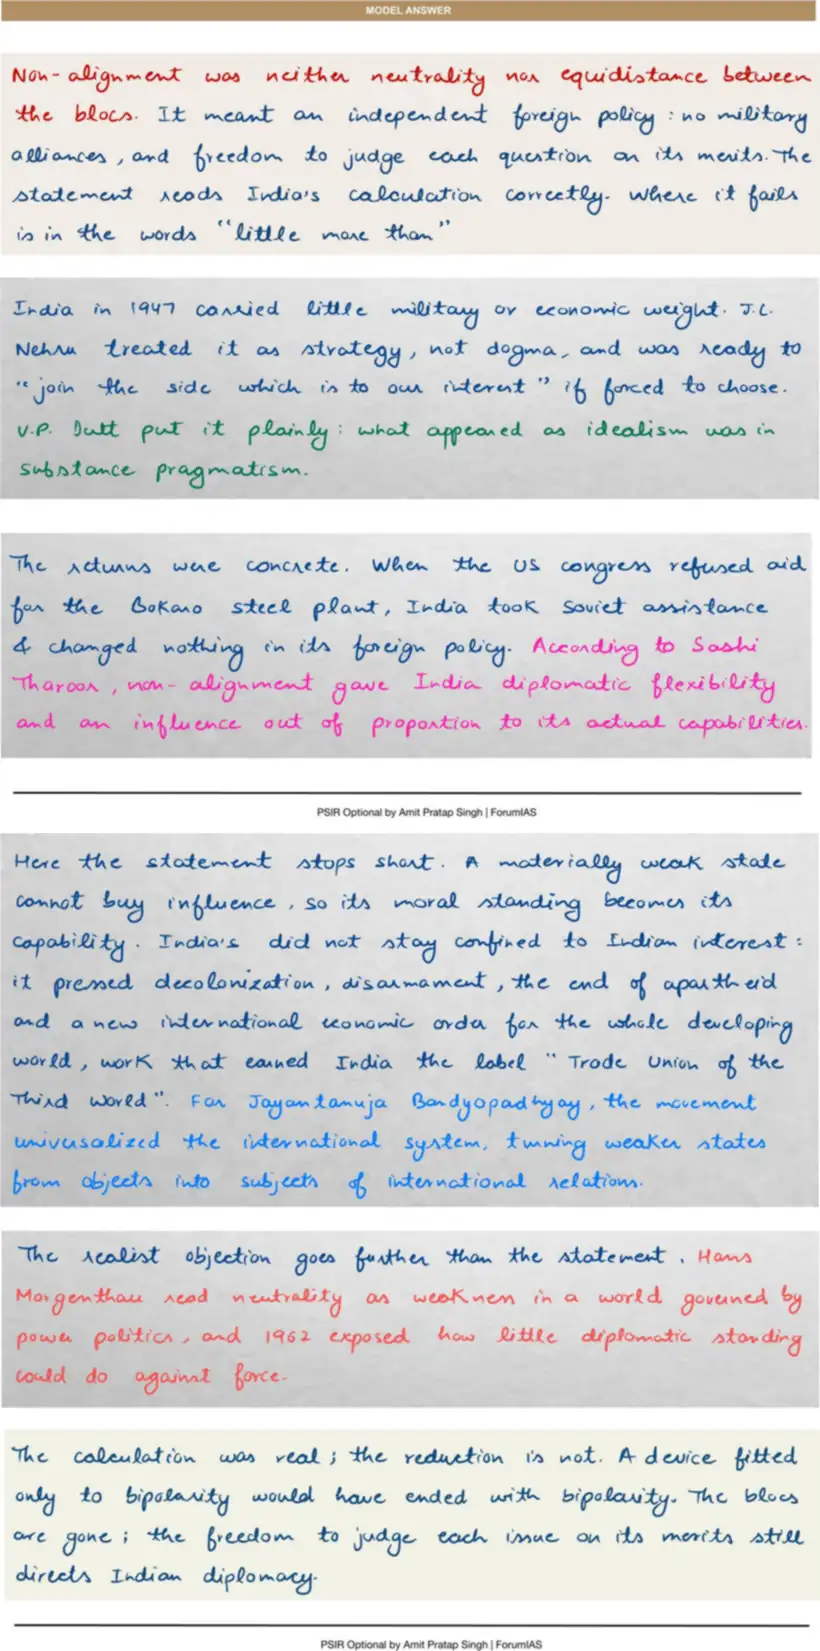 MODEL ANSWER
Non-alignment was neither neutrality nor equidistance between
the blocs. It meant an independent foreign policy : no military
alliances, and freedom to judge each question on its merits. The
statement reads India's calculation correctly. Where it fails
is in the words "little more than"
India in 1947 carried little military or economic weight. J.L.
Nehru treated it as strategy, not dogma, and was ready to
"join the side which is to our interest" if forced to choose.
V.P. Dutt put it plainly : what appeared as idealism was in
substance pragmatism.
The returns were concrete. When the US congress refused aid
for the Bokaro steel plant, India took Soviet assistance
& changed nothing in its foreign policy. According to Sashi
Tharoor, non-alignment gave India diplomatic flexibility
and an influence out of proportion to its actual capabilities.
PSIR Optional by Amit Pratap Singh | ForumIAS
Here the statement stops short. A materially weak state
cannot buy influence, so its moral standing becomes its
capability. India's did not stay confined to Indian interest :
it pressed decolonization, disarmament, the end of apartheid
and a new international economic order for the whole developing
world, work that earned India the label "Trade Union of the
Third World". For Jayantanuja Bandyopadhyay, the movement
universalized the international system, turning weaker states
from objects into subjects of international relations.
The realist objection goes further than the statement. Hans
Morgenthau read neutrality as weakness in a world governed by
power politics, and 1962 exposed how little diplomatic standing
could do against force.
The calculation was real ; the reduction is not. A device fitted
only to bipolarity would have ended with bipolarity. The blocs
are gone ; the freedom to judge each issue on its merits still
directs Indian diplomacy.
PSIR Optional by Amit Pratap Singh | ForumIAS